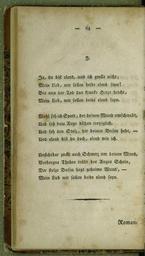 — 64 —
2.
Ja, du bist elend, und ich grolle nicht;
Mein Lieb, wir sollen beide elend seyn!
Bis uns der Tod das kranke Herze bricht,
Mein Lieb, wir sollen beide elend seyn.
Wohl seh ich Spott, der deinen Mund umschwebt,
Und seh dein Auge blitzen trotziglich,
Und seh den Stolz, der deinen Busen hebt, —
Und elend bist du doch, elend wie ich.
Unsichtbar zuckt auch Schmerz um deinen Mund,
Verborgne Thräne trübt des Auges Schein,
Der stolze Busen hegt geheime Wund, —
Mein Lieb, wir sollen beide elend seyn.